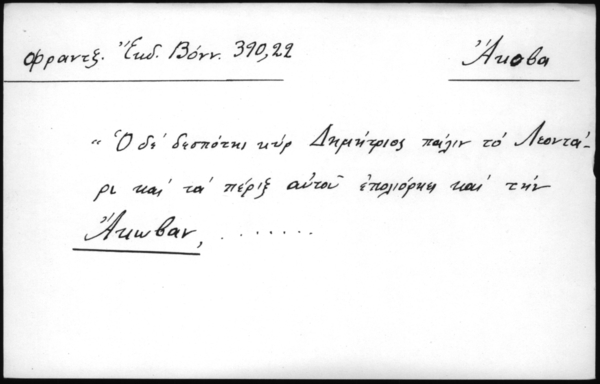 Φραντζ. Ἔκδ. Βόνν. 390,22
Ἄκοβα
" Ὁ δέ δεσπότης κύρ Δημήτριος πάλιν τό Λεοντά-
ρι καί τά πέριξ αὐτοῦ ἐπολιόρκει καί τήν
Ἄκωβαν, . . . . . . .